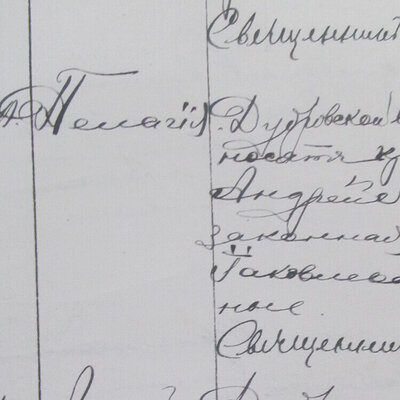 Священник
Пелагія
Дубровской
носатя
Андрей
законная
Яковлев
ные.
Священник